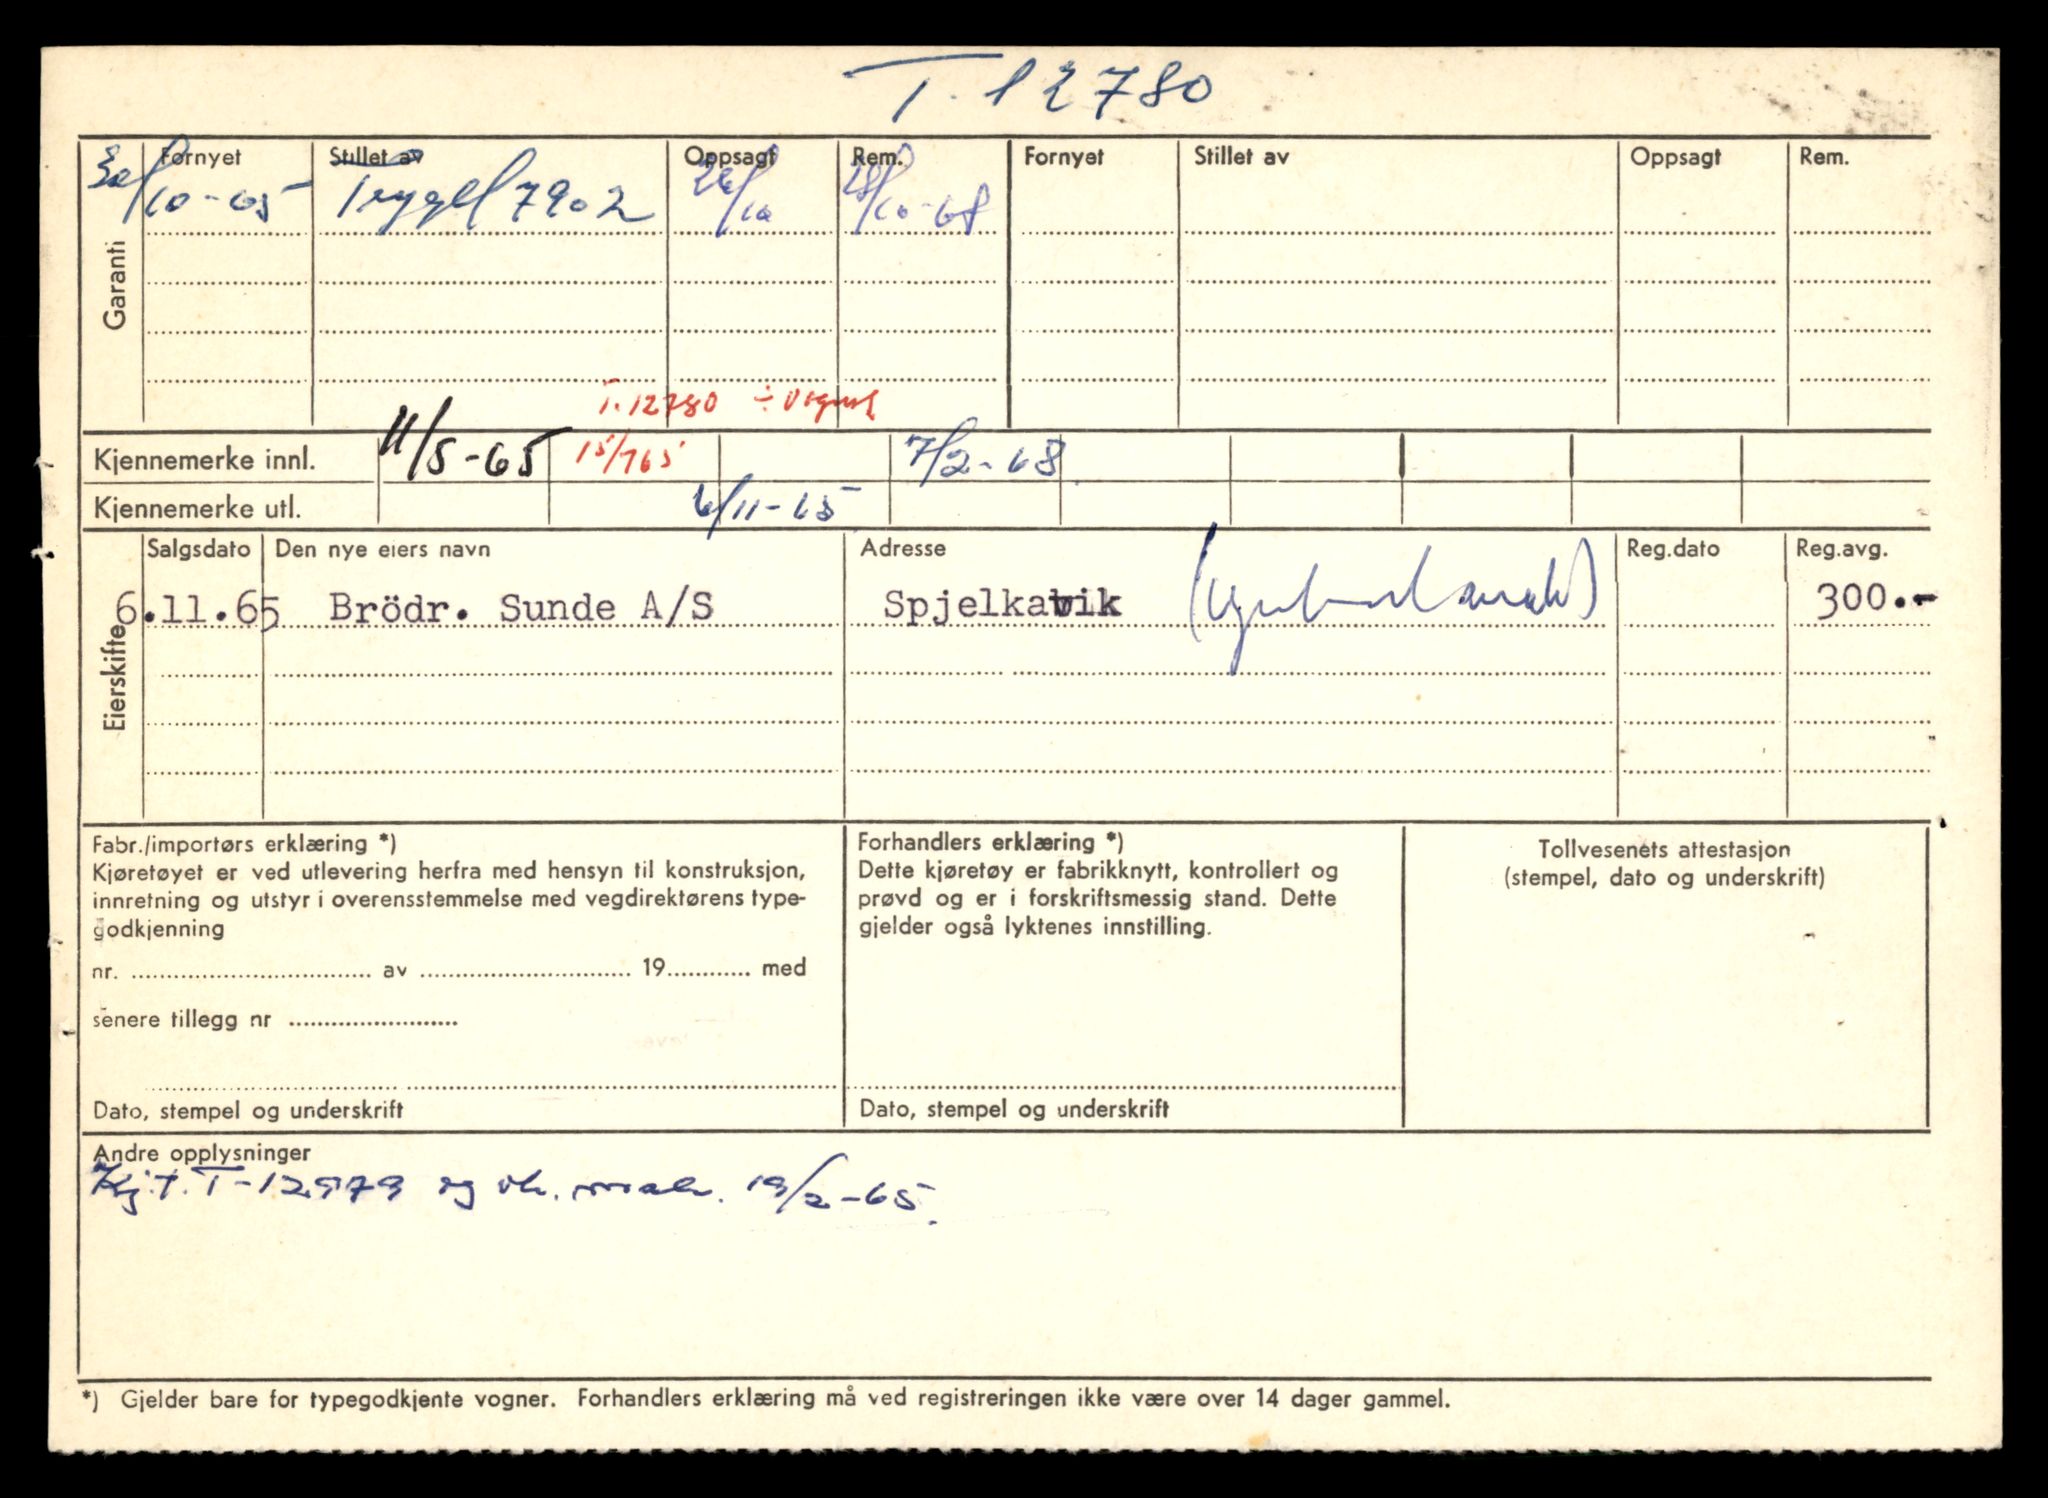 T. 12780
Garanti
Fornyet Stillet av Oppsagt Rem. Fornyet Stillet av Oppsagt Rem.
/10-65 7902 /10 /10-68
T. 12780
Kjennemerke innl. 11/5-65 15/765 7/2-68
Kjennemerke utl. 6/11-65
Eierskifte
Salgsdato Den nye eiers navn Adresse Reg.dato Reg.avg.
6.11.65 Brödr. Sunde A/S Spjelkavik 300.-
Fabr./importørs erklæring *)
Kjøretøyet er ved utlevering herfra med hensyn til konstruksjon,
innretning og utstyr i overensstemmelse med vegdirektørens type-
godkjenning
nr. av 19 med
senere tillegg nr
Dato, stempel og underskrift
Forhandlers erklæring *)
Dette kjøretøy er fabrikknytt, kontrollert og
prøvd og er i forskriftsmessig stand. Dette
gjelder også lyktenes innstilling.
Dato, stempel og underskrift
Tollvesenets attestasjon
(stempel, dato og underskrift)
Andre opplysninger
Kj.t. T-12979 og 19/2-65.
*) Gjelder bare for typegodkjente vogner. Forhandlers erklæring må ved registreringen ikke være over 14 dager gammel.